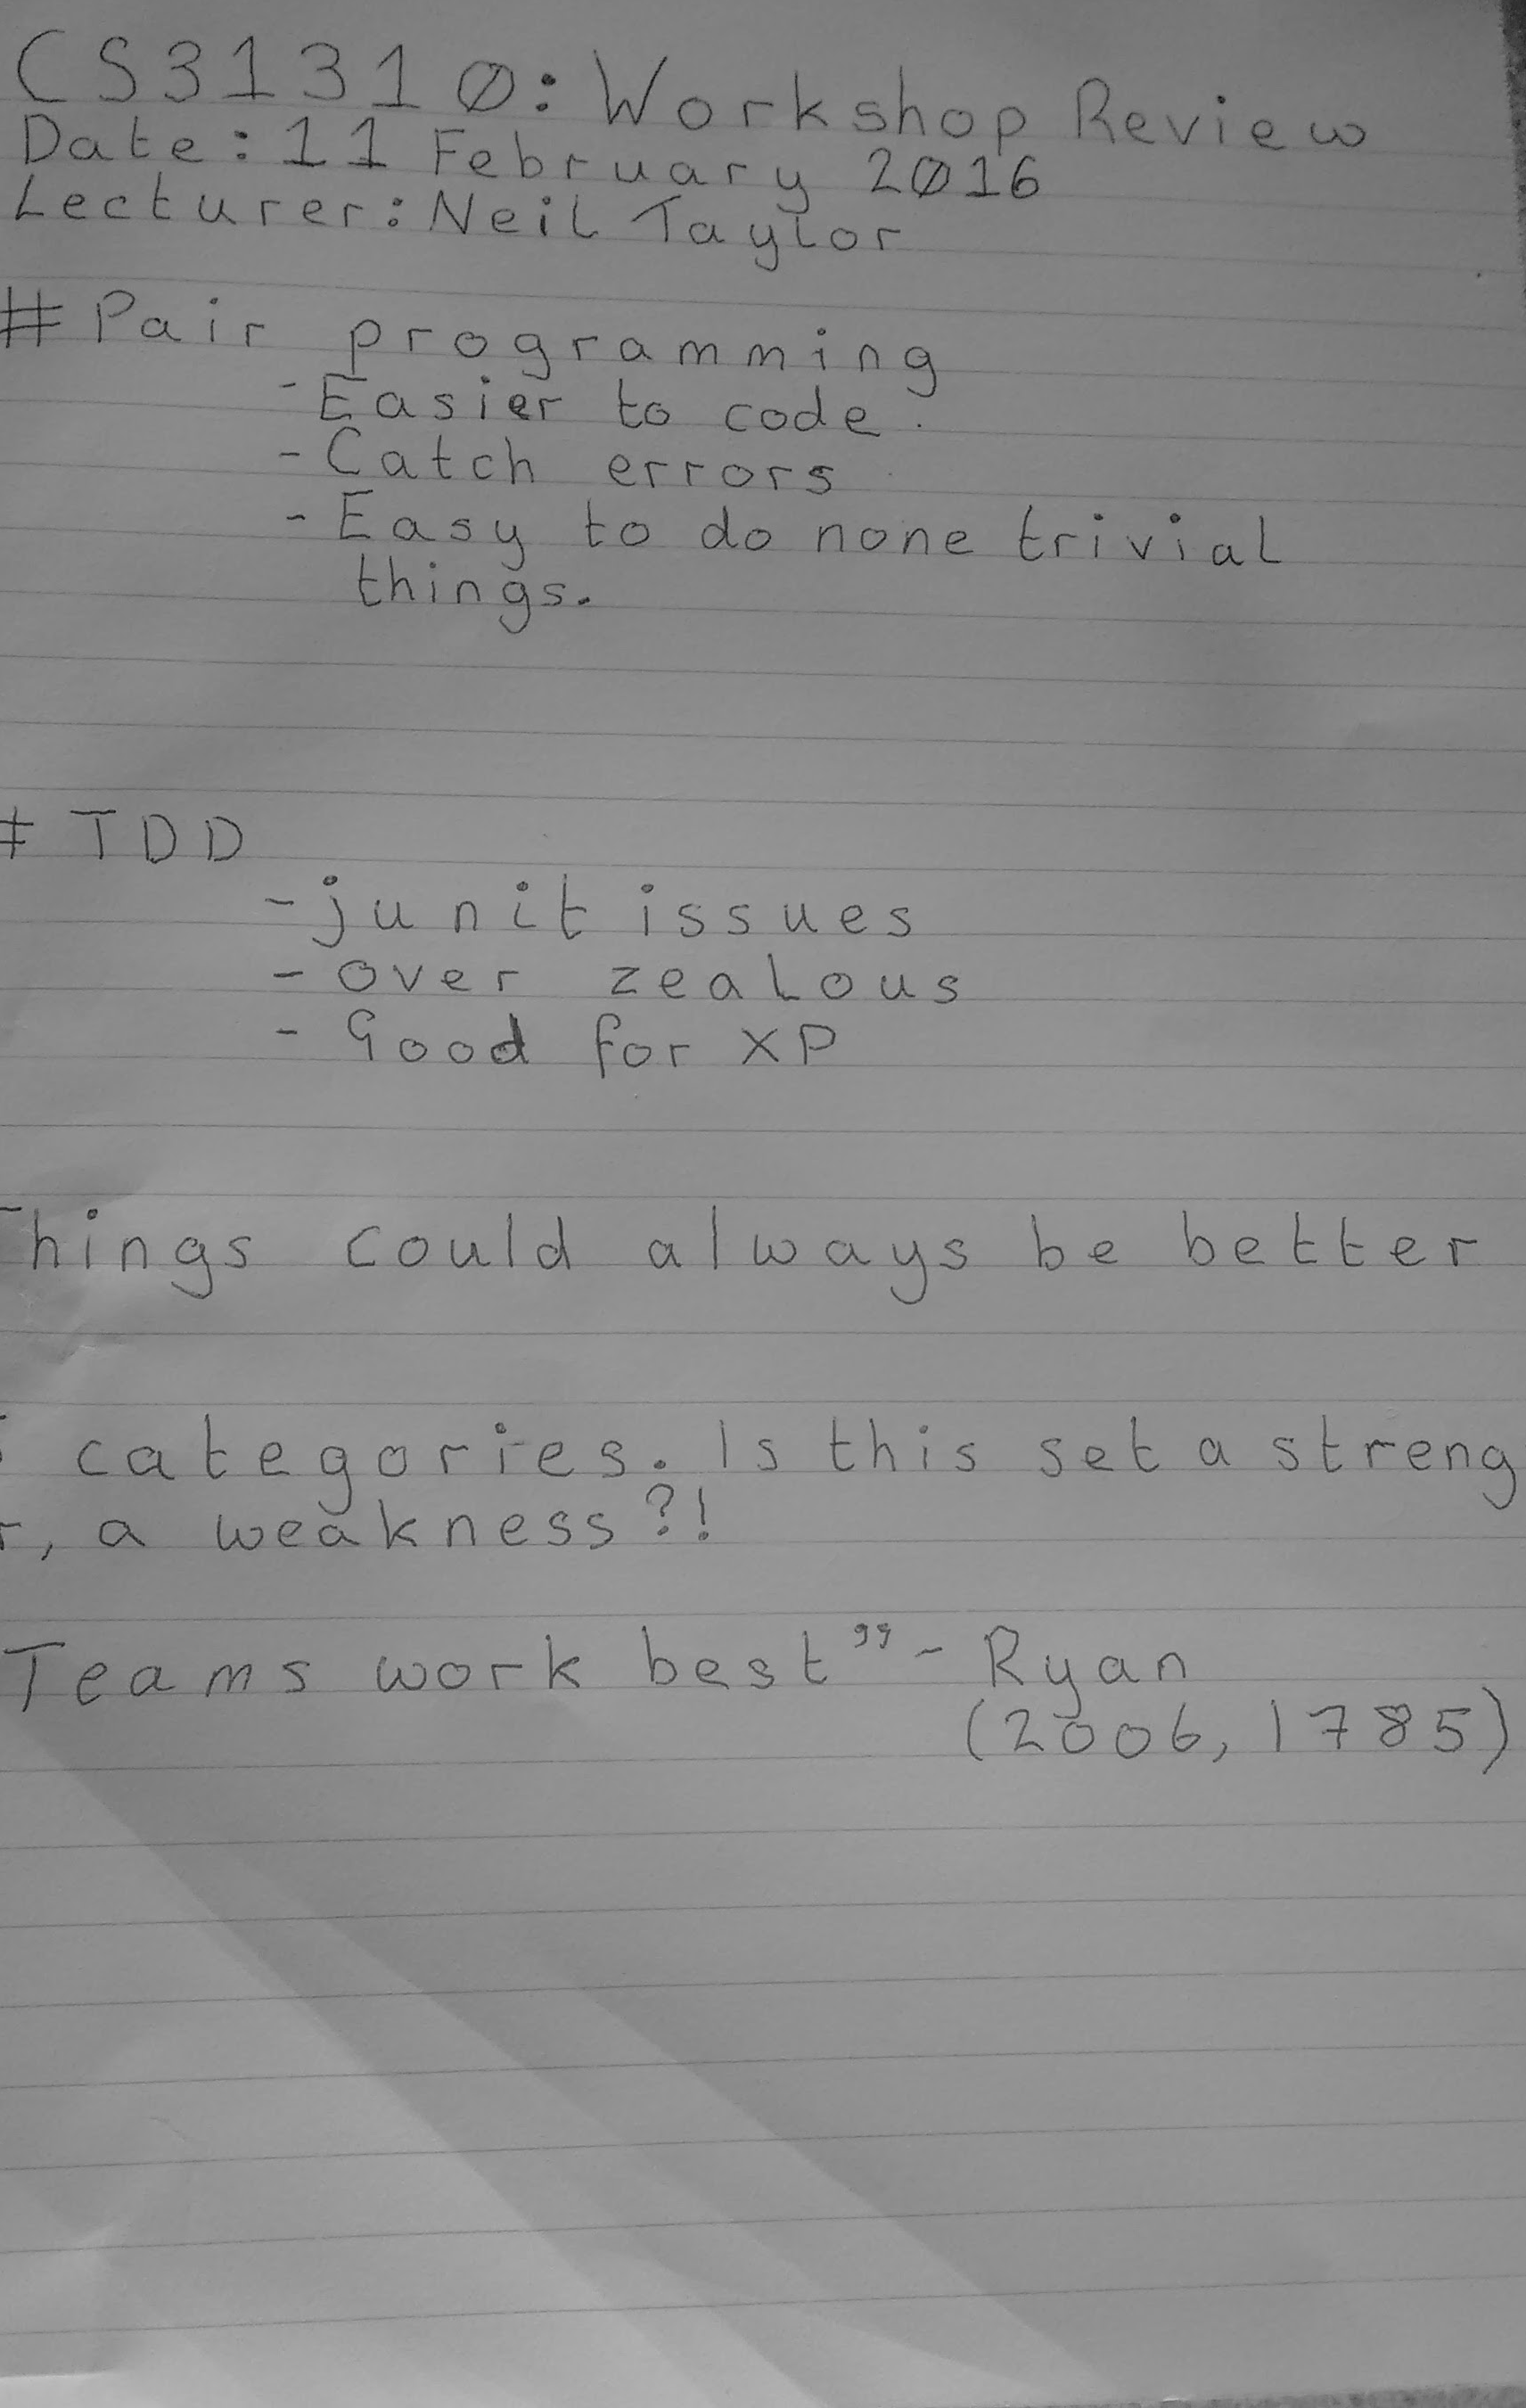 CS31310: Workshop Review
Date: 11 February 2016
Lecturer: Neil Taylor
# Pair programming
- Easier to code.
- Catch errors
- Easy to do none trivial
things.
# TDD
- junit issues
- over zealous
- Good for XP
Things could always be better
categories. Is this set a streng
, a weakness?!
Teams work best” - Ryan
(2006, 1785)